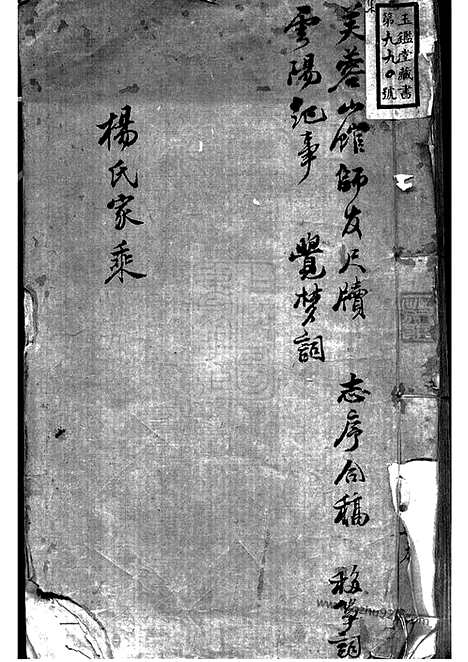 玉鑑堂藏書
第九九〇號
芙蓉山館師友尺牘 志序合稿 移箏詞
雲陽紀事 覺夢詞
楊氏家乘